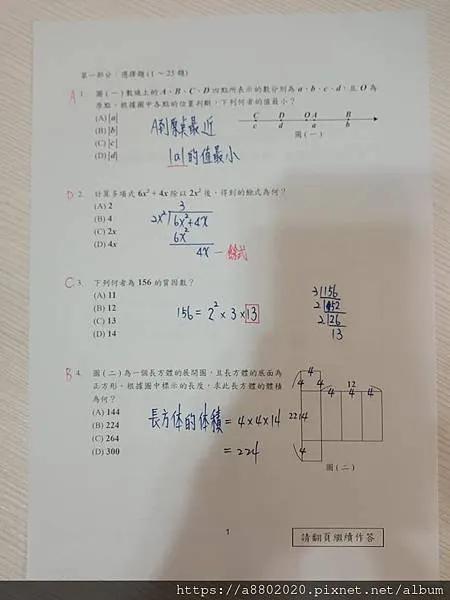 第一部分：選擇題(1～25題)
A 1. 圖(一)數線上的A、B、C、D四點所表示的數分別為a、b、c、d，且O為
原點。根據圖中各點的位置判斷，下列何者的值最小？
(A) |a|
(B) |b|
(C) |c|
(D) |d|
A到原点最近
|a|的值最小
C D O A B
c d a b
圖(一)
D 2. 計算多項式6x²+4x除以2x²後，得到的餘式為何？
(A) 2
(B) 4
(C) 2x
(D) 4x
3
2x² 6x²+4x
6x²
4x — 餘式
C 3. 下列何者為156的質因數？
(A) 11
(B) 12
(C) 13
(D) 14
156 = 2² × 3 × 13
3 156
2 52
2 26
13
B 4. 圖(二)為一個長方體的展開圖，且長方體的底面為
正方形。根據圖中標示的長度，求此長方體的體積
為何？
(A) 144
(B) 224
(C) 264
(D) 300
長方体的体積 = 4×4×14
= 224
4
4 4 12
4 4 4
22 14
4
圖(二)
1
請翻頁繼續作答
https://a8802020.pixnet.net/album